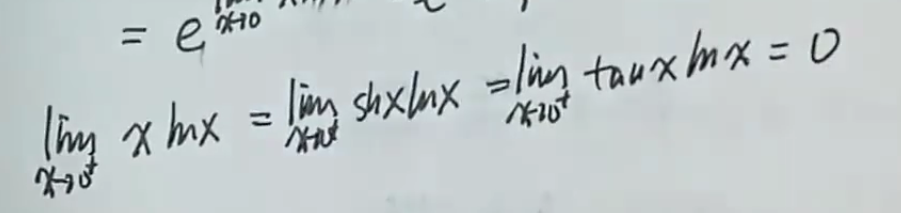 = e^{lim x→0
lim x→0⁺ x ln x = lim x→0⁺ sin x ln x = lim x→0⁺ tan x ln x = 0